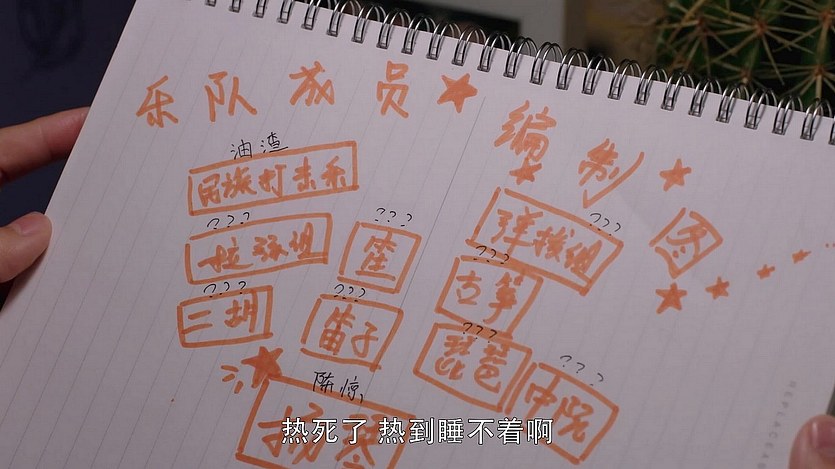 乐队成员★编制图
油渣
民族打击乐
???
拉弦组
???
笙
???
弹拨组
???
二胡
???
笛子
???
古筝
???
琵琶
???
中阮
陈惊
扬琴
热死了 热到睡不着啊